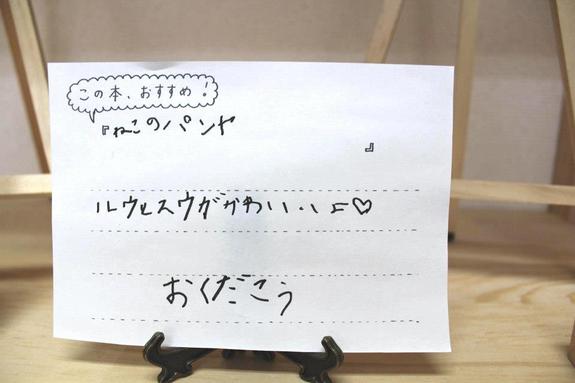 この本、おすすめ!
『ねこのパンヤ
』
ルウとスウががわいいよ♡
おくだこう